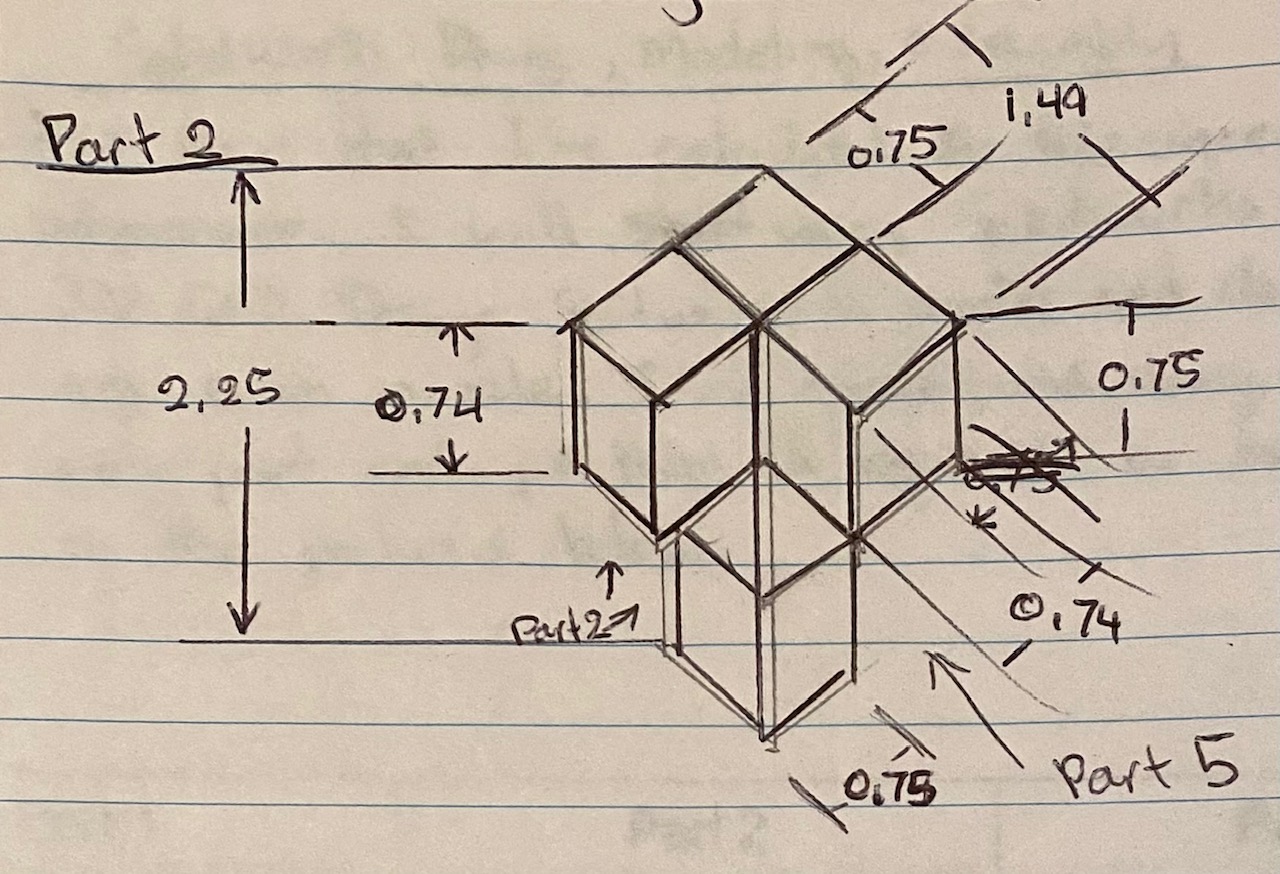 Part 2
1.49
0.75
2.25
0.74
0.75
Part 2
0.74
0.75
Part 5